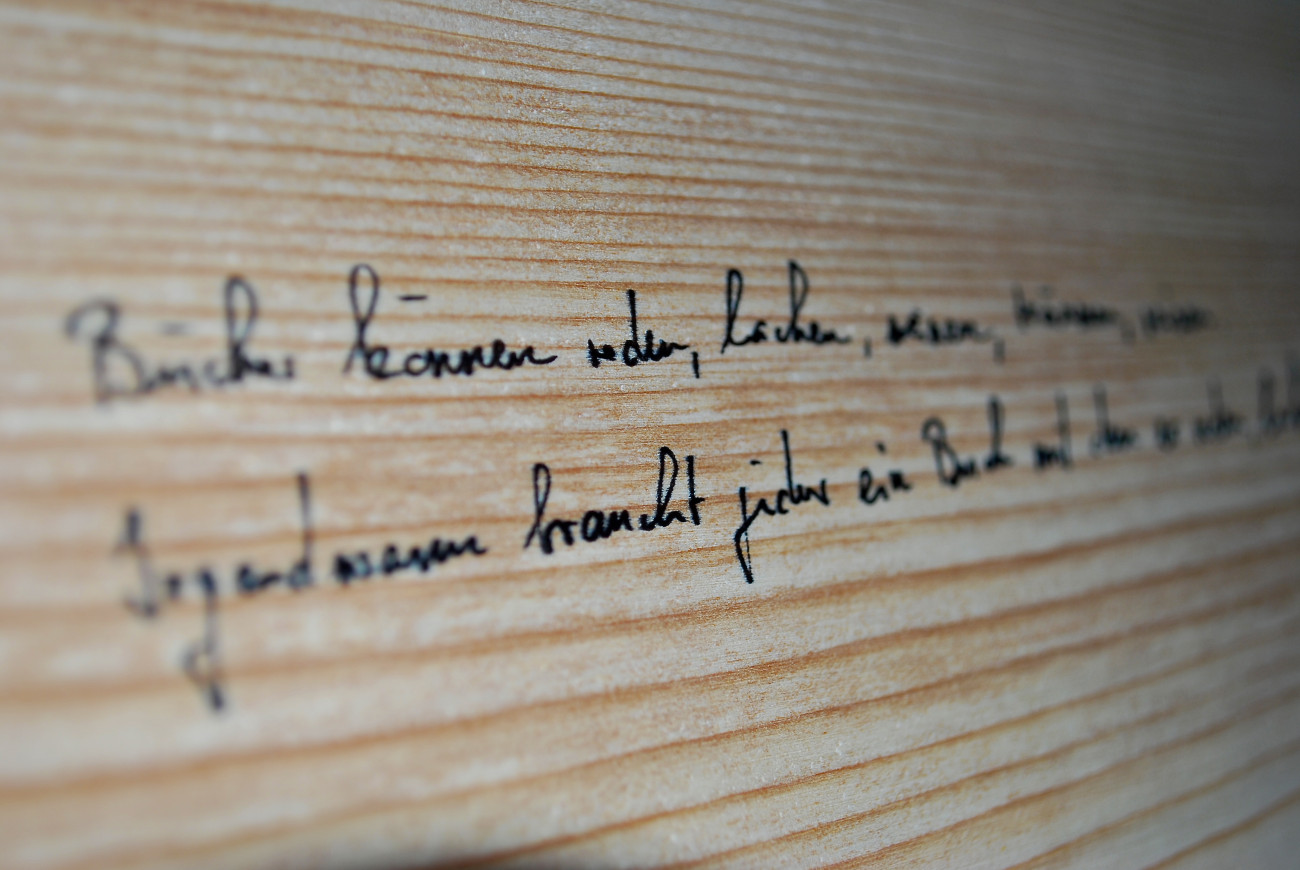 Bücher können reden, lachen, weinen, träumen,
Irgendwann braucht jeder ein Buch mit dem er